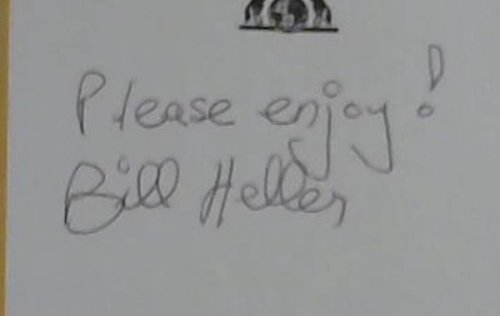 Please enjoy!
Bill Heller